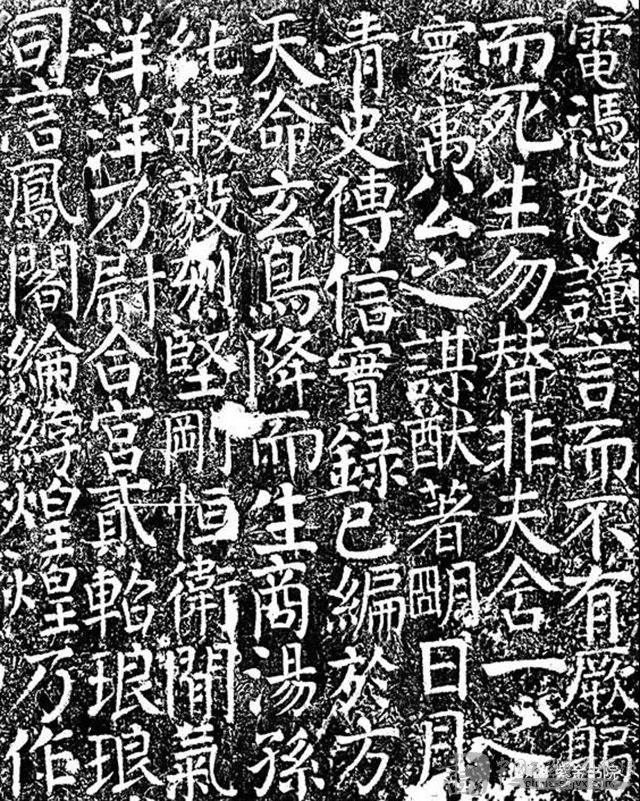 電慿怒謹言而不有厥
而死生勿替非夫含一
寰寓公之謀猷著明日月
青史傳信實錄已編於方
天命玄鳥降而生商湯孫
純嘏毅烈堅剛恒衛間氣
洋洋乃尉合宮貳軺琅琅
司言鳳閣綸綍煌煌乃作
紫金书院